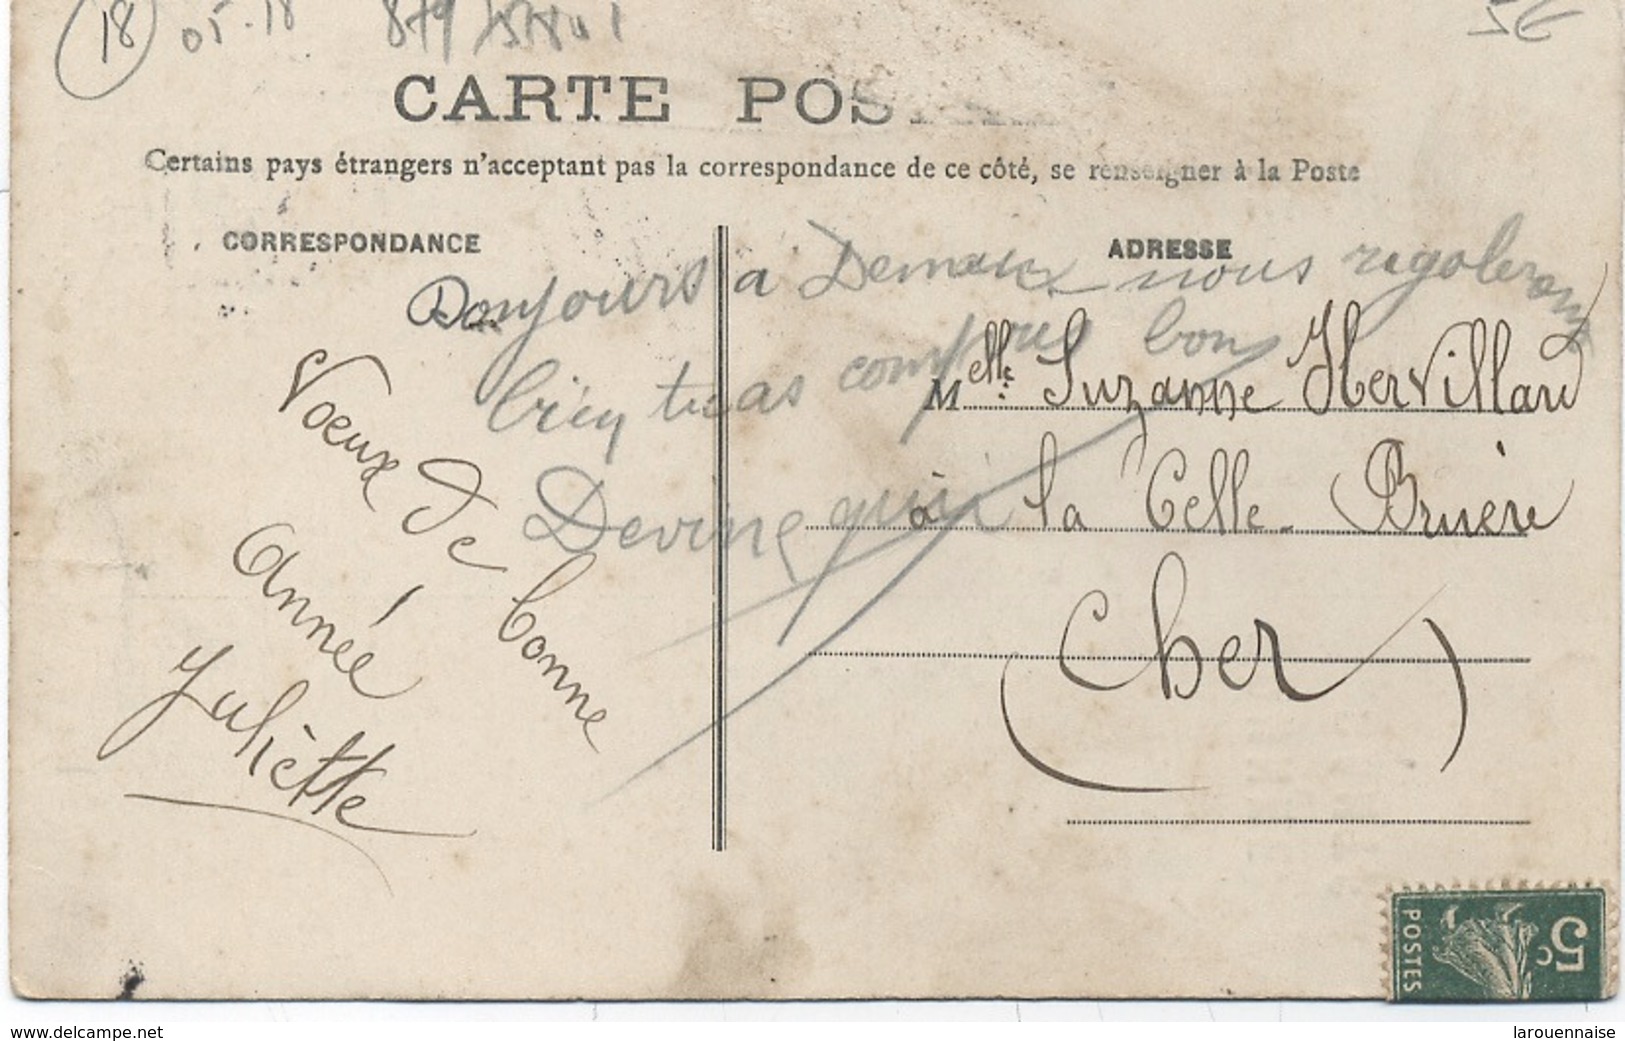 18
05-18
5€
CARTE POS
Certains pays étrangers n'acceptant pas la correspondance de ce côté, se renseigner à la Poste
CORRESPONDANCE
ADRESSE
Bonjours a Demain nous rigolerons
bien tu as compris bons
Devine qui
Voeux de bonne
année
Juliètte
Melle Suzanne Hervillard
à la Celle-Bruère
(Cher)
5c
POSTES
www.delcampe.net
larouennaise